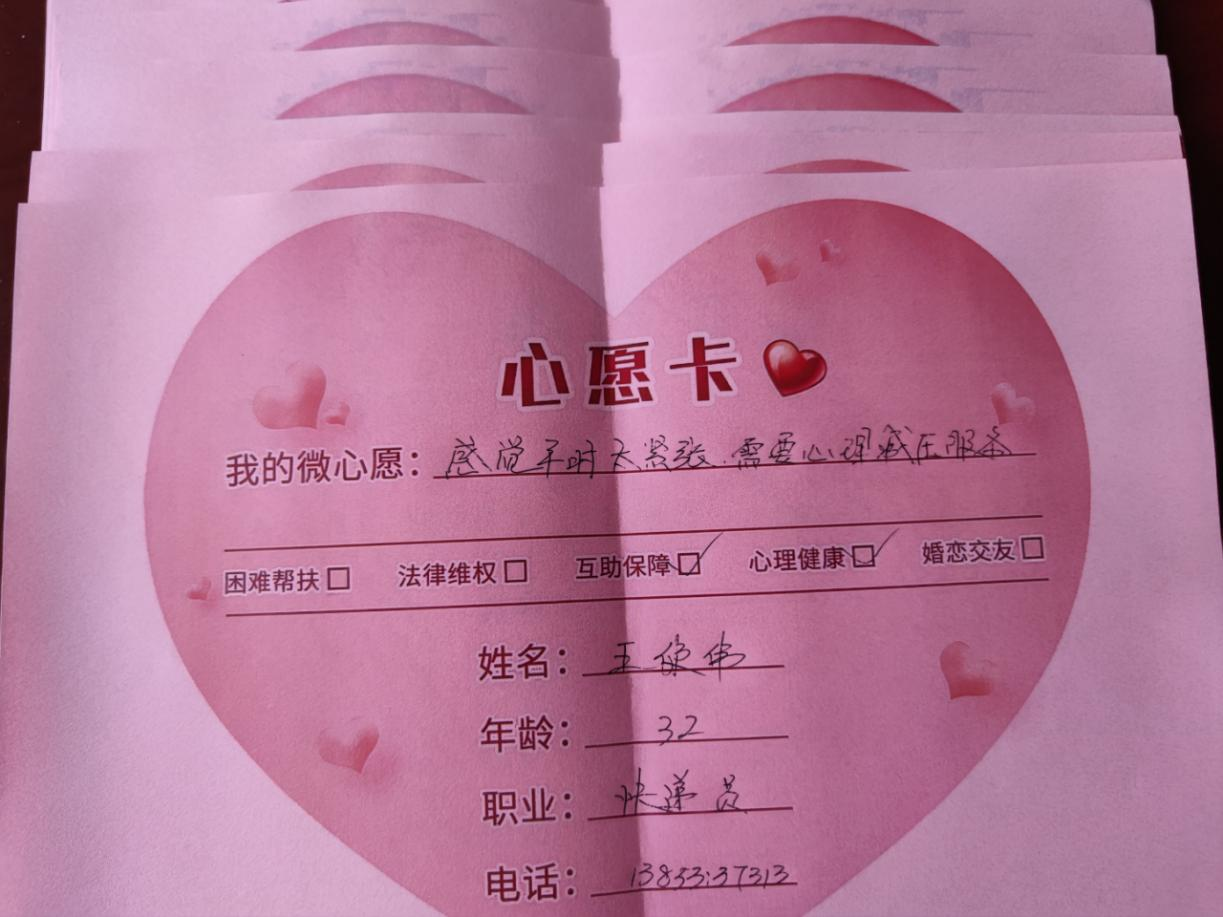 心愿卡
我的微心愿：感觉平时太紧张.需要心理减压服务
困难帮扶□ 法律维权□ 互助保障☑ 心理健康☑ 婚恋交友□
姓名：王俊伟
年龄：32
职业：快递员
电话：